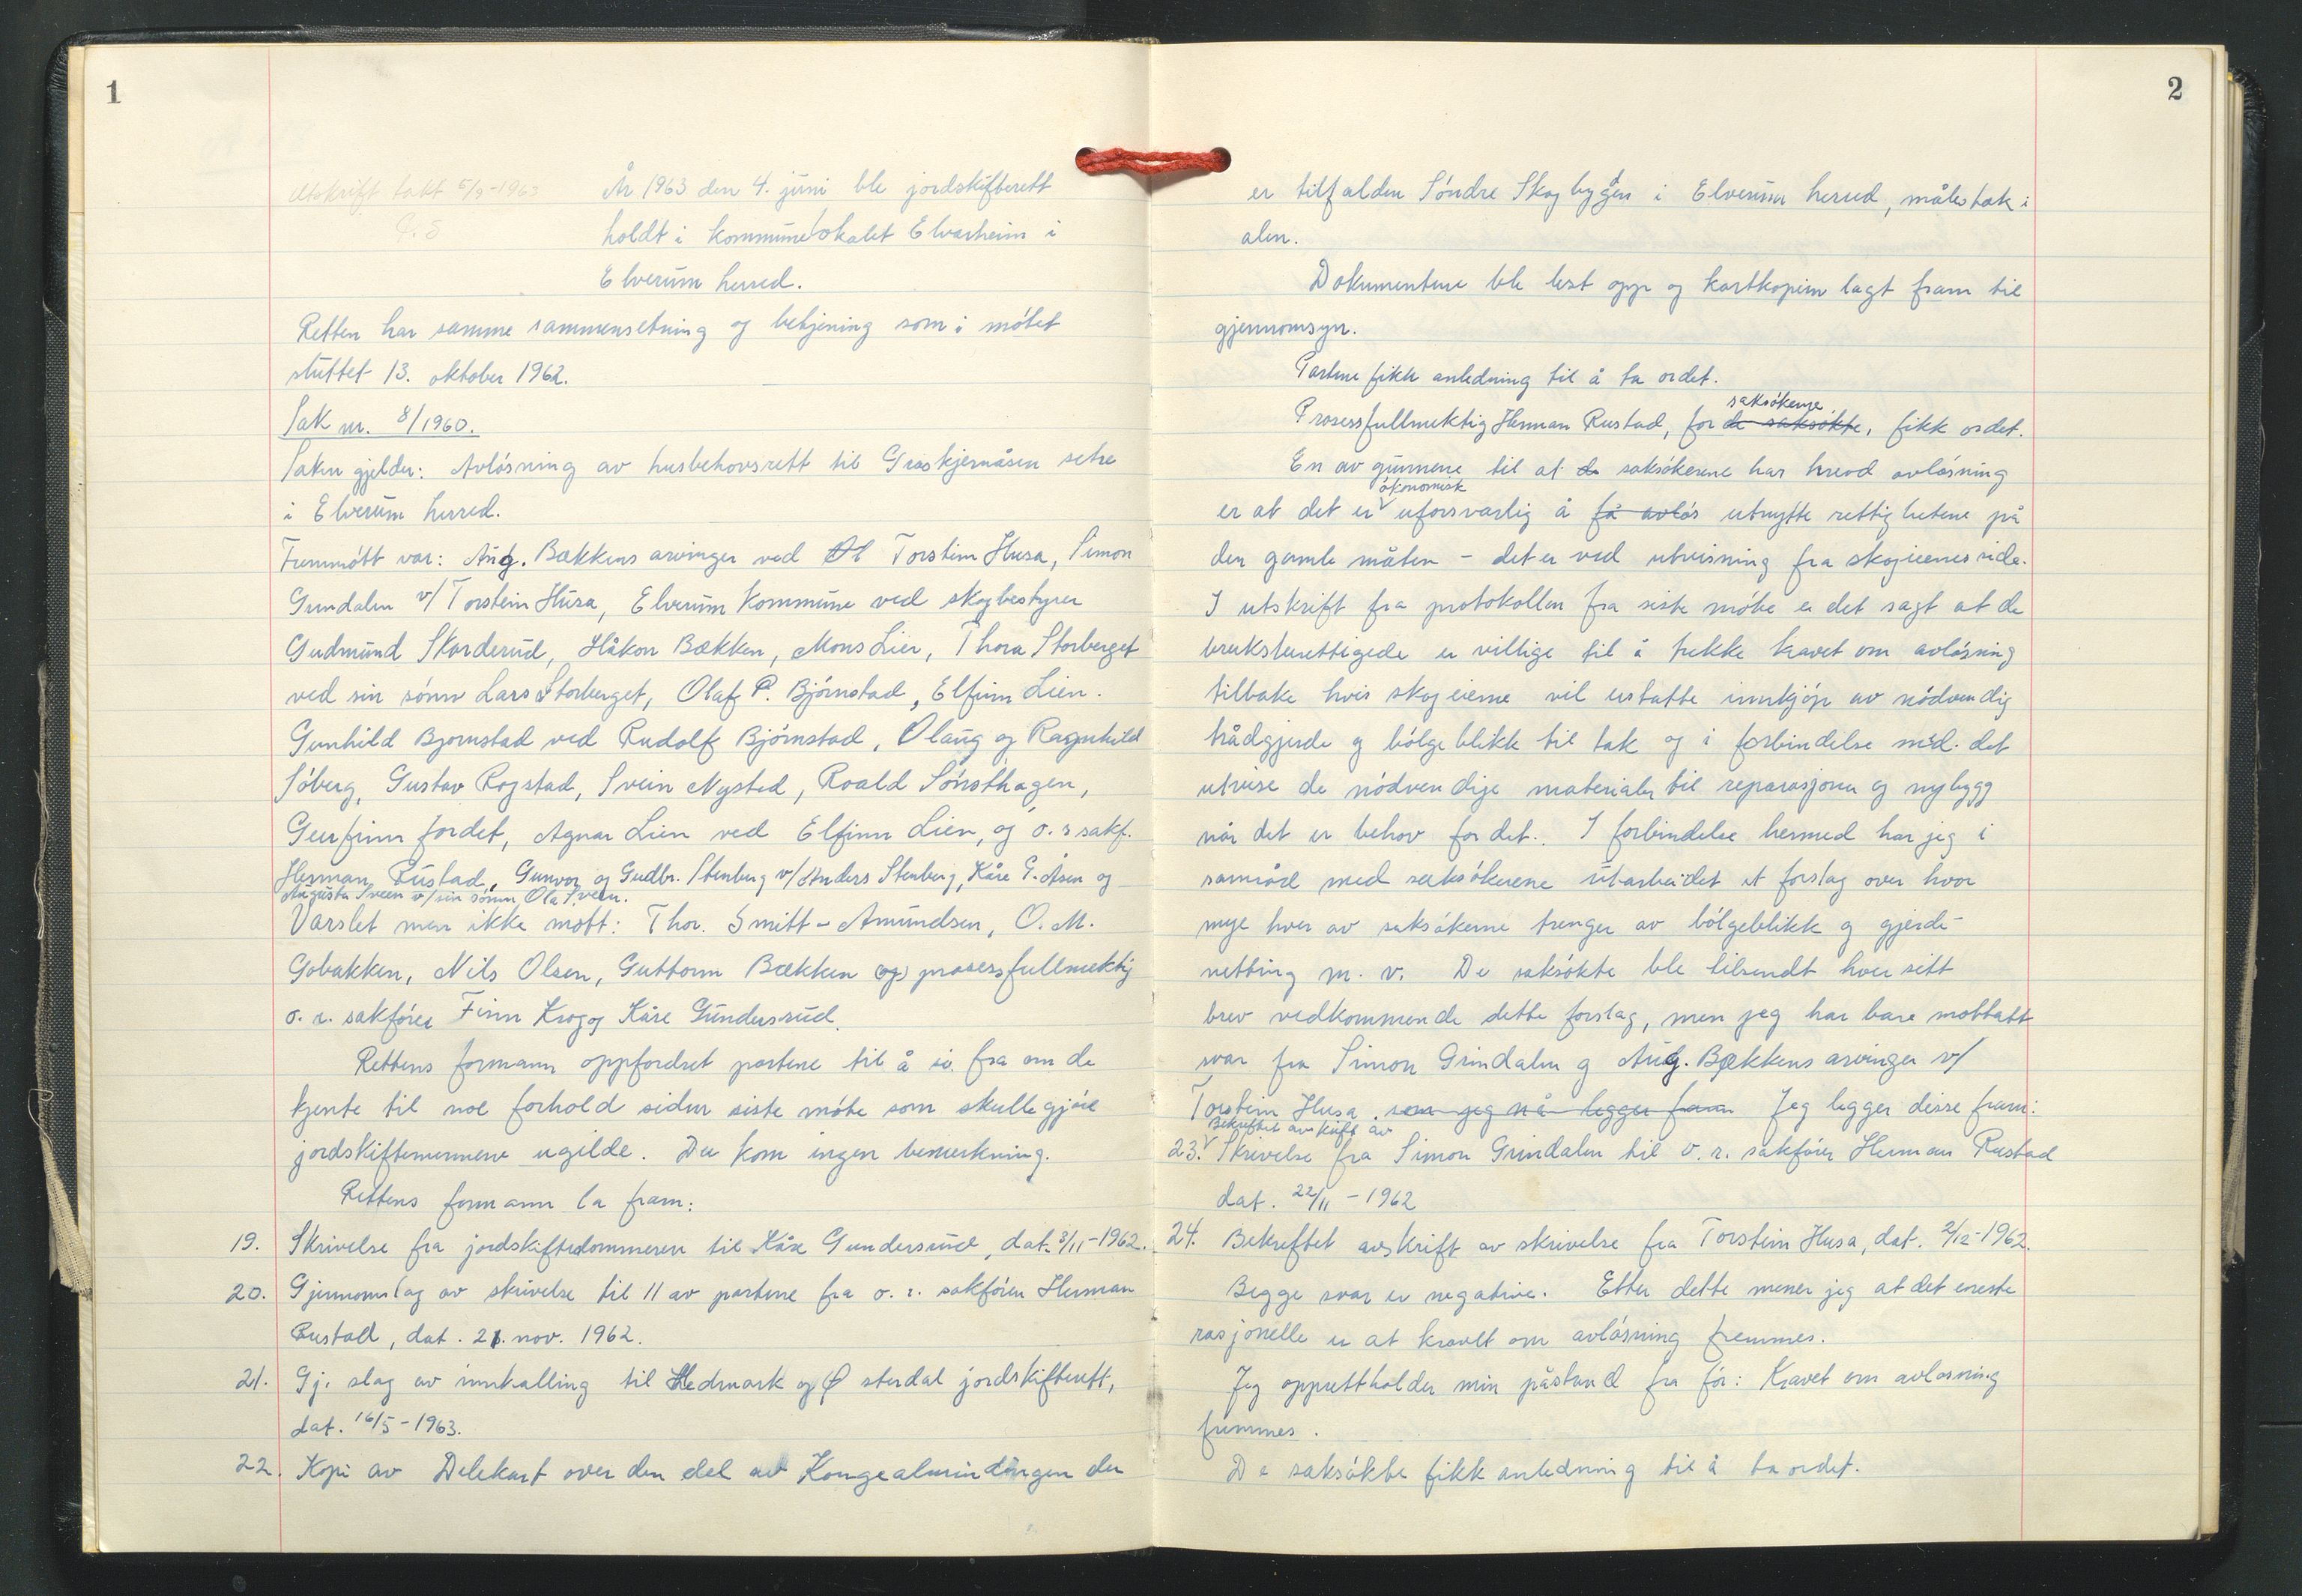 1
Utskrift takt 5/9-1963
År 1963 den 4. juni ble jordskifterett
holdt i kommunelokalet Elvarheim i
Elverum herred.
Retten har samme sammensetning og betjening som i møtet
sluttet 13. oktober 1962.
Sak nr. 8/1960.
Saken gjelder: Avløsning av husbehovsrett til Grøskjernåsen setre
i Elverum herred.
Fremmøtt var: Aug. Bækkens arvinger ved Torstein Husa, Simon
Grindalen v/ Torstein Husa, Elverum Kommune ved skogbestyrer
Gudmund Skarderud, Håkon Bækken, Mons Lier, Thora Storberget
ved sin sønn Lars Storberget, Olaf P. Bjørnstad, Elfinn Lien.
Gunhild Bjørnstad ved Rudolf Bjørnstad, Olaug og Ragnhild
Søberg, Gustav Rogstad, Svein Nysted, Roald Sønsthagen,
Geirfinn Fordet, Agnar Lien ved Elfinn Lien, og o.r sakf.
Herman Rustad, Gunvor og Gudbr. Stenberg v/ Anders Stenberg, Kåre G. Åsen og
Augusta Sveen v/ sin sønn Ola Sveen.
Varslet men ikke møtt: Thor. Smitt-Amundsen, O. M.
Gobakken, Nils Olsen, Guttorm Bækken (og) prosessfullmektig
o. r. sakfører Finn Krog og Kåre Gundersrud.
Rettens formann oppfordret partene til å si fra om de
kjente til noe forhold siden siste møte som skulle gjøre
jordskiftemennene ugilde. Det kom ingen bemerkning.
Rettens formann la fram:
19. Skrivelse fra jordskiftedommeren til Kåre Gundersrud, dat. 3/11-1962.
20. Gjennomslag av skrivelse til 11 av partene fra o. r. sakfører Herman
Rustad, dat. 21. nov. 1962.
21. Gj. slag av innkalling til Hedmark og Østerdal jordskifterett,
dat. 16/5-1963.
22. Kopi av Delekart over den del av Kongealmindingen der
2
er tilfalden Søndre Skogbygden i Elverum herred, målestok i
alen.
Dokumentene ble lest opp og kartkopien lagt fram til
gjennomsyn.
Partene fikk anledning til å ta ordet.
saksøkerne
Prosessfullmektig Herman Rustad, for de saksøkte, fikk ordet.
En av grunnene til at de saksøkerene har krevd avløsning
økonomisk
er at det er uforsvarlig å få avløs utnytte rettighetene på
den gamle måten - det er ved utvisning fra skogeiernes side.
I utskrift fra protokollen fra siste møte er det sagt at de
bruksberettigede er villige til å trekke kravet om avløsning
tilbake hvis skogeierne vil erstatte innkjøp av nødvendig
trådgjerde og bølgeblikk til tak og i forbindelse med det
utvise de nødvendige materialer til reparasjoner og nybygg
når det er behov for det. I forbindelse hermed har jeg i
samråd med saksøkerene utarbeidet et forslag over hvor
mye hver av saksøkerne trenger av bølgeblikk og gjerde-
netting m. v. De saksøkte ble tilsendt hver sitt
brev vedkommende dette forslag, men jeg har bare mottatt
svar fra Simon Grindalen og Aug. Bækkens arvinger v/
Torstein Husa. som jeg nå legger fram Jeg legger disse fram:
Bekreftet avskrift av
23. Skrivelse fra Simon Grindalen til o. r. sakfører Herman Rustad
dat. 22/11-1962
24. Bekreftet avskrift av skrivelse fra Torstein Husa, dat. 2/12-1962.
Begge svar er negative. Etter dette mener jeg at det eneste
rasjonelle er at kravet om avløsning fremmes.
Jeg opprettholder min påstand fra før: Kravet om avløsning
fremmes.
De saksøkte fikk anledning til å ta ordet.